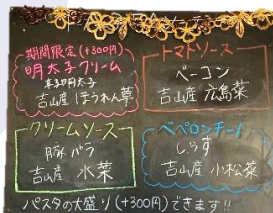 期間限定(+300円)
明太子クリーム
辛子明太子
吉山産 ほうれん草
トマトソース
ベーコン
吉山産 広島菜
クリームソース
豚バラ
吉山産 水菜
ペペロンチーノ
しらす
吉山産 小松菜
パスタの大盛り(+300円)できます!!